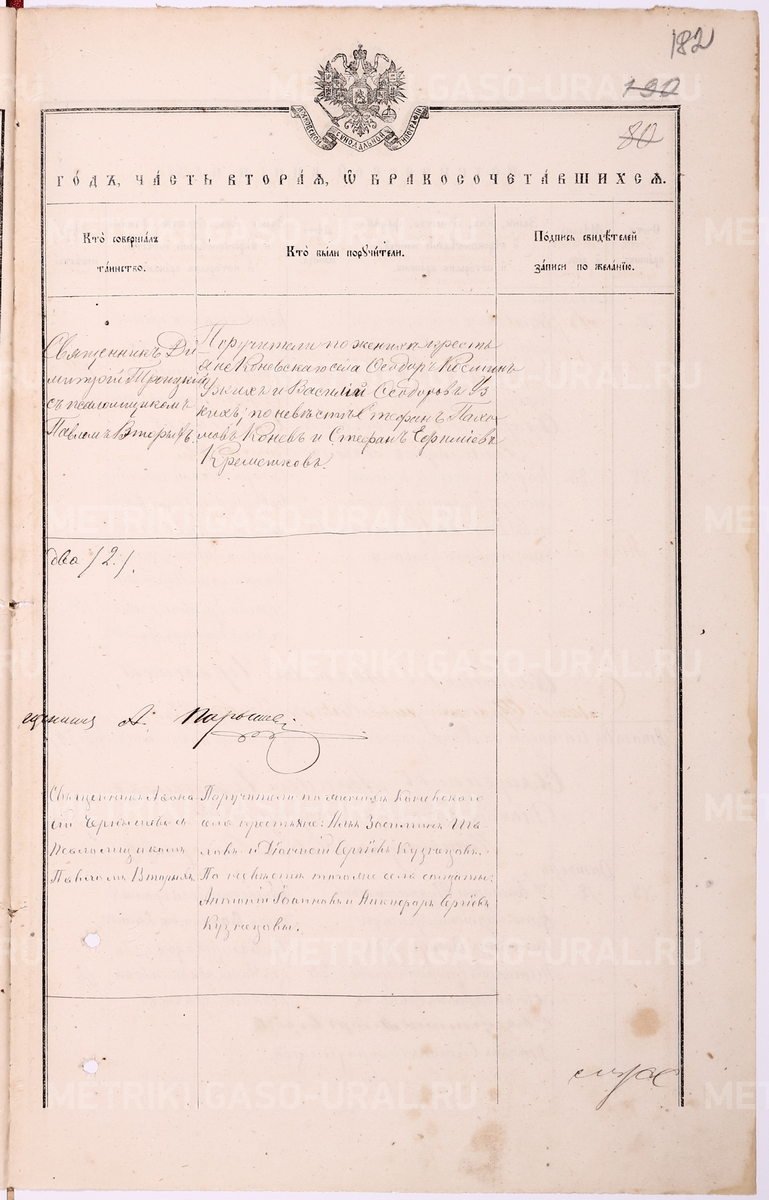 182
190
80
МОСКОВСКОЙ СѴНОДАЛЬНОЙ ТИПОГРАФІИ
ГО́ДЪ, ЧА́СТЬ ВТОРА́Я, Ѡ БРАКОСОЧЕТА́ВШИХСЯ.
Кто̀ соверша́лъ
та́инство.
Кто̀ бы́ли порꙋчи́тели.
По́дпись свидѣ́телей
за́писи по жела́нїю.
Священникъ Ди
митрій Троицкій
съ псаломщикомъ
Павломъ Вторыхъ.
Поручители по женихѣ кресть
яне Коневскаго села Ѳеодоръ Косминъ
Узкихъ и Василій Ѳеодоровъ Уз
кихъ; по невѣстѣ Стефанъ Пахо
мовъ Коневъ и Стефанъ Ефиміевъ
Кремешковъ.
два /2./
А.
Священникъ Аѳона
сій Чернышевъ съ
Псаломщикомъ
Павломъ Вторыхъ
Поручители по женихѣ Коневского
села крестьяне: Илья
и Діонисій Сергіевъ Кузнецовъ.
По невѣстѣ тогоже села солдаты:
Антоній Іоанновъ и Никифоръ Сергіевъ
Кузнецовы.
METRIKI.GASO-URAL.RU